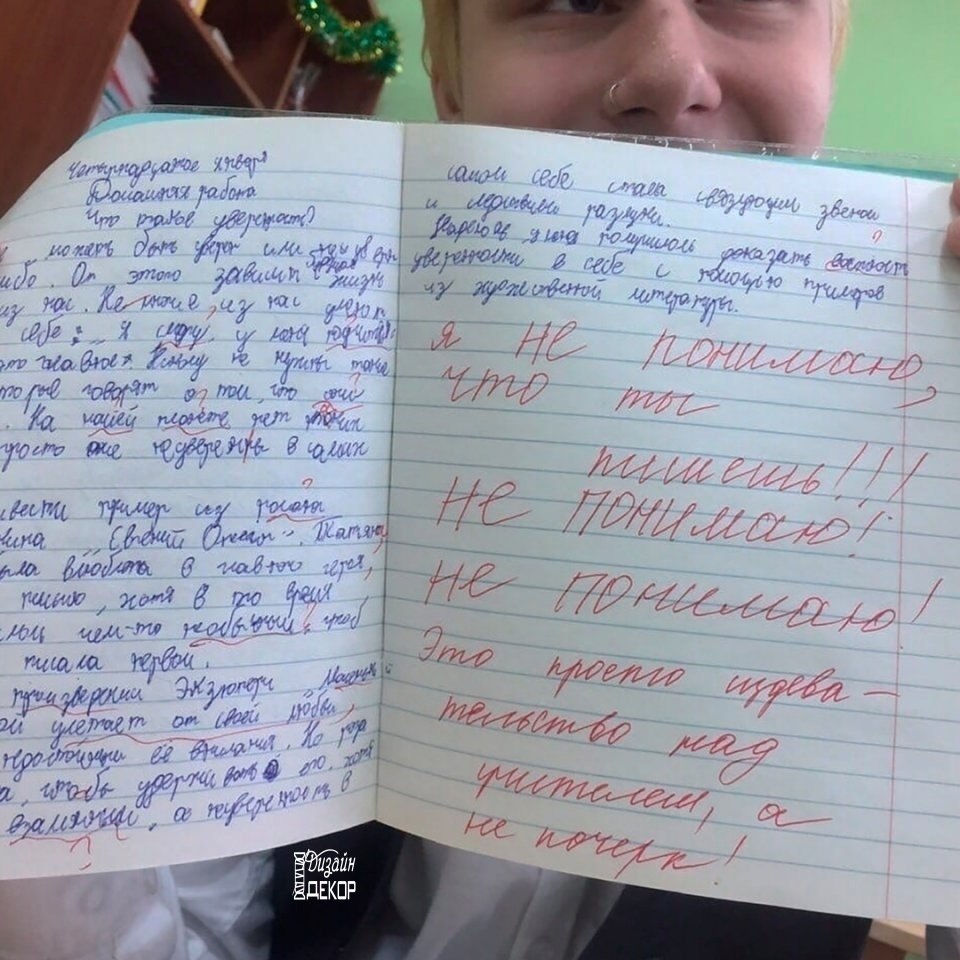 Четырнадцатое января
Домашняя работа
Что такое уверенность?
может быть уверен или
либо. От этого зависит жизнь
из нас. Не многие, из нас умеют
себе: „Я смогу, у меня получится"
это главное". Никому не нужны такие
которые говорят о том, что они
. На нашей планете нет таких
просто они не уверены в самих
привести пример из романа
„Евгений Онегин". Татьяна
была влюблена в главного героя,
письмо, хотя в то время
чем-то необычным, чтоб
писала первой.
произведении Экзюпери „Маленький
улетает от своей любви,
её внимания. Но роза
, чтобы удерживать его, хотя
взаимны, а неуверенность в
самом себе стала связующим звеном
и мешавшим разлуки.
Надеюсь, у меня получилось доказать важность
уверенности в себе с помощью примеров
из художественной литературы.
я не понимаю,
что ты
пишешь!!!
Не понимаю!
Не понимаю!
Это просто издева-
тельство над
учителем, а
не почерк!
Дизайн
ДЕКОР